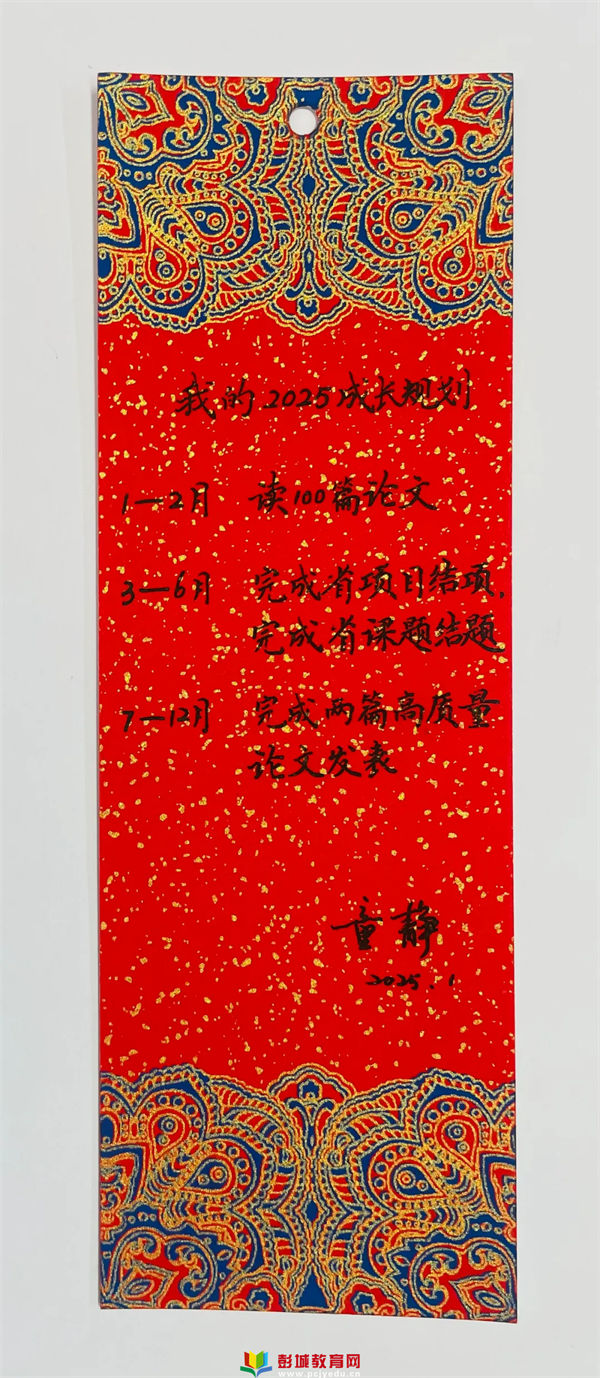 我的2025成长规划
1—2月 读100篇论文
3—6月 完成省项目结项,
完成省课题结题
7—12月 完成两篇高质量
论文发表
童静
2025.1
彭城教育网
www.pcjyedu.cn